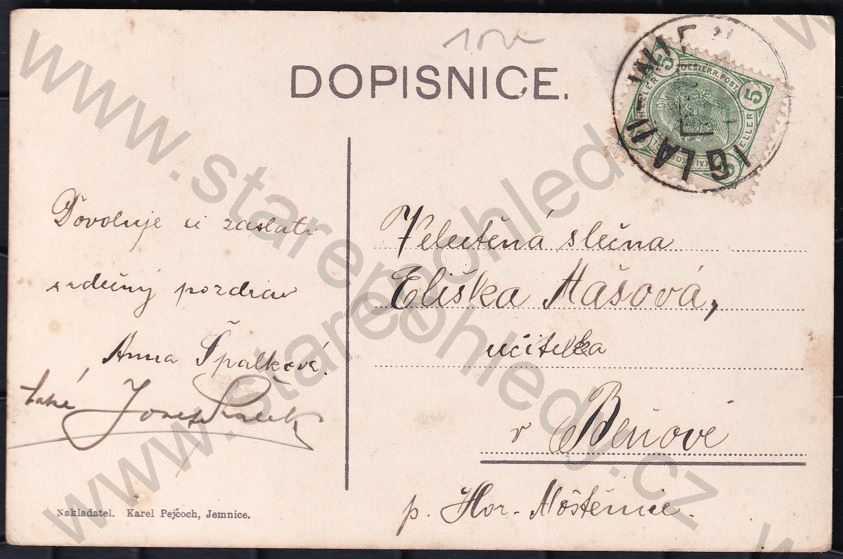 DOPISNICE.
IGLAU WIEN
5
OESTERR. POST
5
Dovoluje si zaslati
srdečný pozdrav
Anna Špalková.
také Josef
Velectěná slečna
Eliška Hášová,
učitelka
v Beňově
p. Hor. Moštěnice.
Nakladatel. Karel Pejčoch, Jemnice.
www.stareeohledy.cz